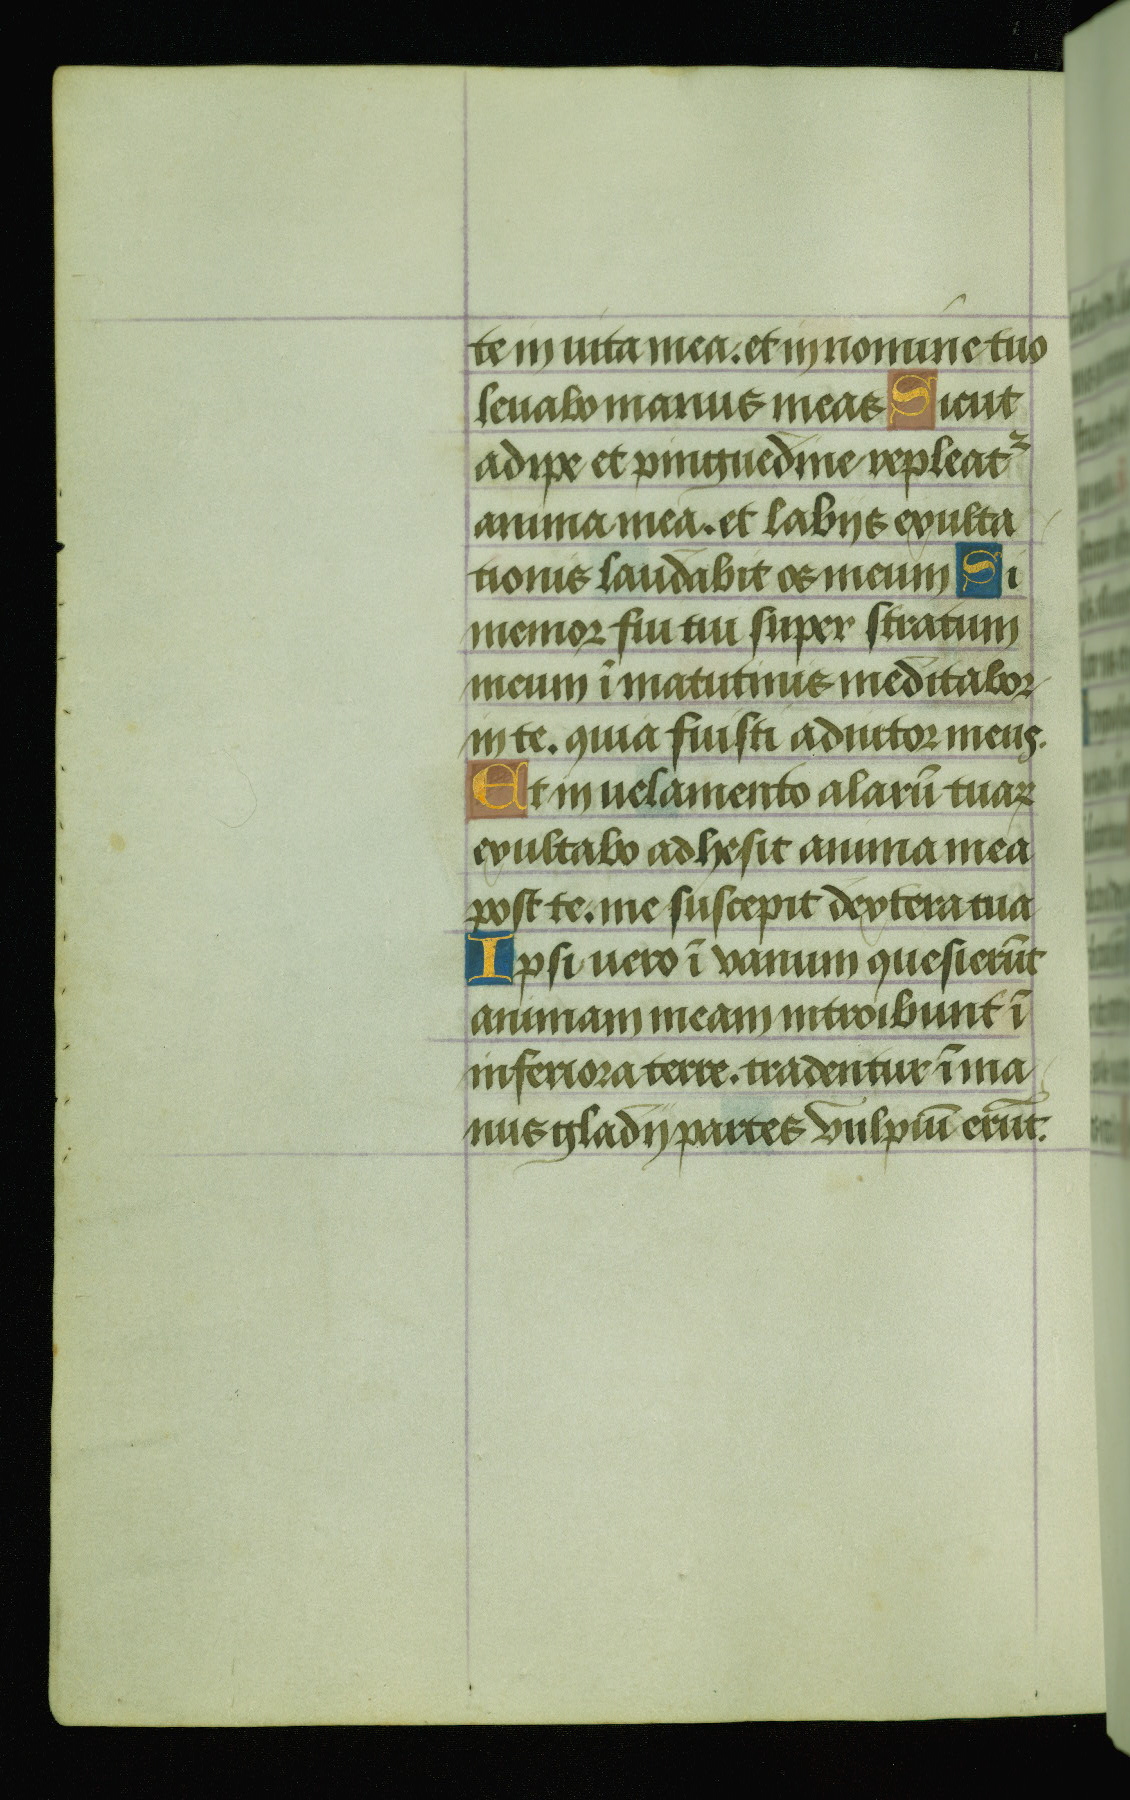 te in uita mea. et in nomine tuo
leuabo manus meas Sicut
adipe et pinguedine repleat᷑
anima mea. et labijs exulta
tionis laudabit os meum Si
memor fui tui super stratum
meum ī matutinis meditabor
in te. quia fuisti adiutor meus.
Et in uelamento alarū tuaꝝ
exultabo adhesit anima mea
post te. me suscepit dextera tua
Ipsi uero ī vanum quesierūt
animam meam introibunt ī
inferiora terre. tradentur ī ma
nus gladij partes vulpiū erūt.